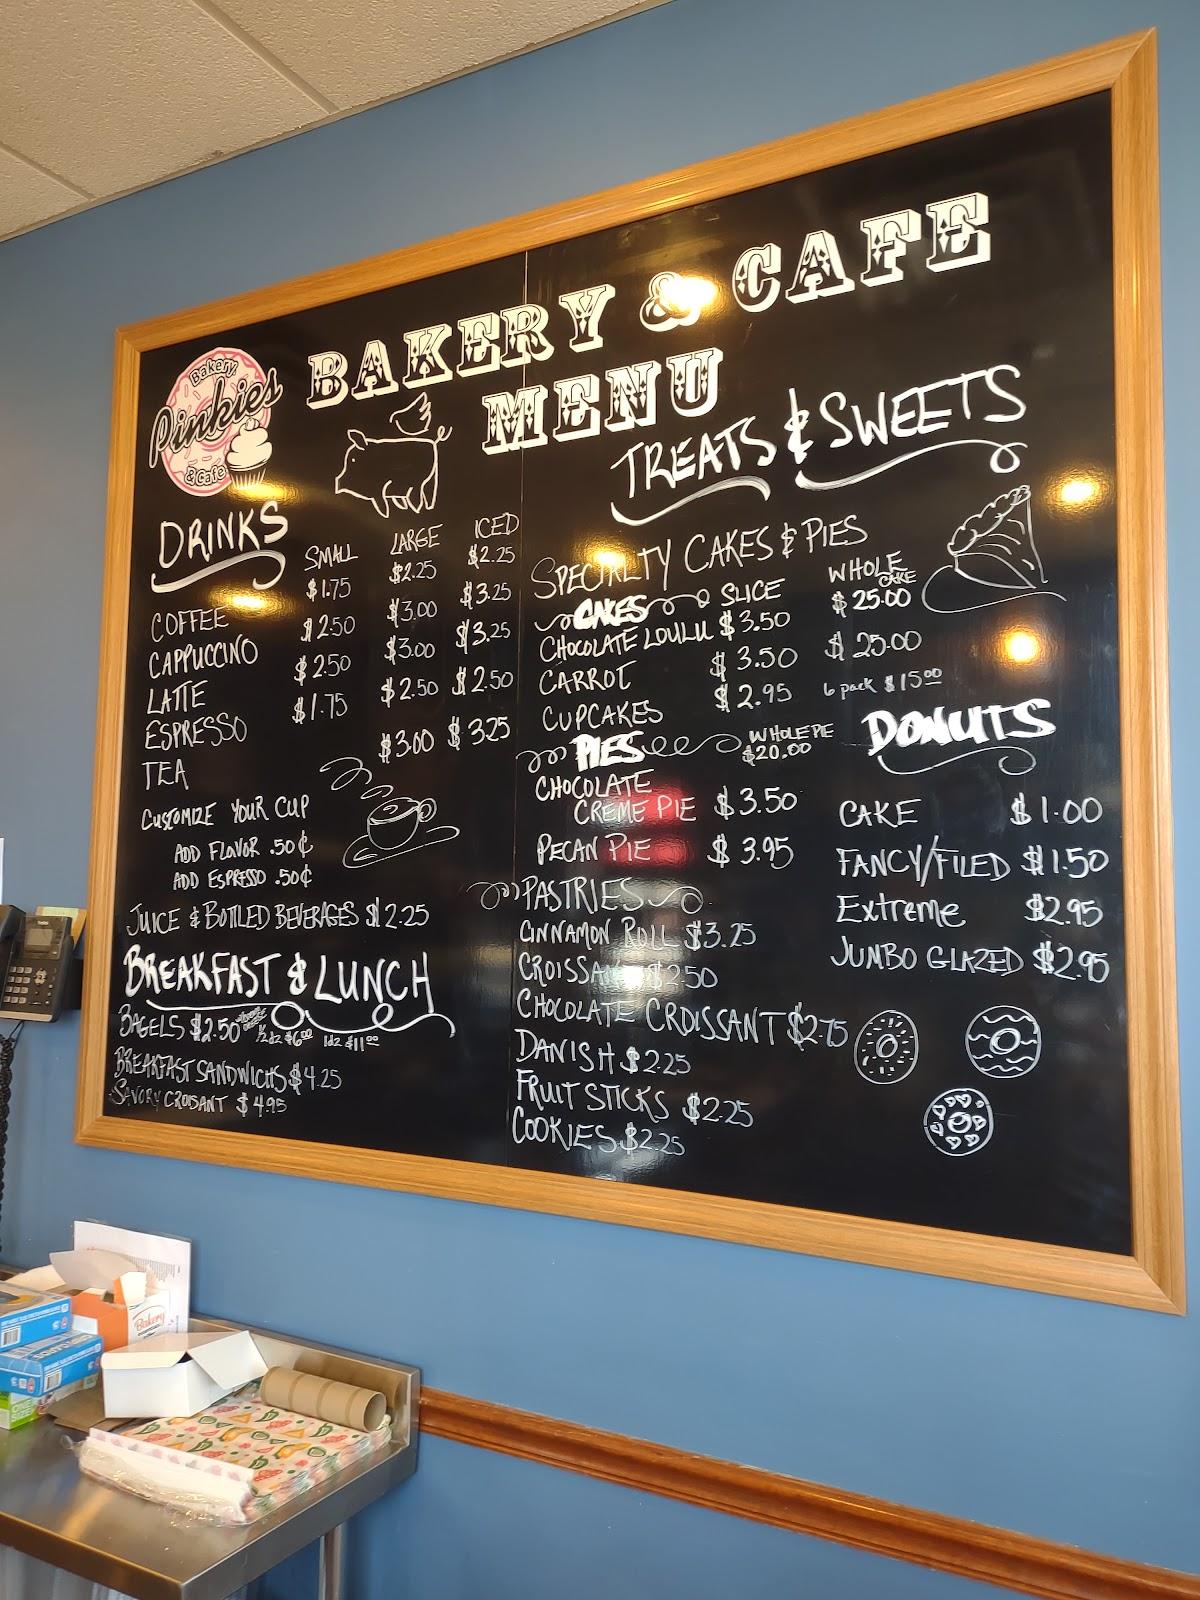 BAKERY & CAFE
MENU
Bakery
Pinkies
& Cafe
DRINKS
SMALL LARGE ICED
COFFEE $1.75 $2.25 $2.25
CAPPUCCINO $2.50 $3.00 $3.25
LATTE $2.50 $3.00 $3.25
ESPRESSO $1.75 $2.50 $2.50
TEA $3.00 $3.25
CUSTOMIZE YOUR CUP
ADD FLAVOR .50¢
ADD ESPRESSO .50¢
JUICE & BOTTLED BEVERAGES $2.25
BREAKFAST & LUNCH
BAGELS $2.50 1/2 dz $6.00 1dz $11.00
BREAKFAST SANDWICHS $4.25
SAVORY CROISANT $4.95
TREATS & SWEETS
SPECIALTY CAKES & PIES
CAKES SLICE WHOLE CAKE
CHOCOLATE LOULU $3.50 $25.00
CARROT $3.50 $25.00
CUPCAKES $2.95 6 pack $15.00
PIES WHOLE PIE $20.00
CHOCOLATE
CREME PIE $3.50
PECAN PIE $3.95
PASTRIES
CINNAMON ROLL $3.25
CROISSANT $2.50
CHOCOLATE CROISSANT $2.75
DANISH $2.25
FRUIT STICKS $2.25
COOKIES $2.25
DONUTS
CAKE $1.00
FANCY/FILED $1.50
Extreme $2.95
JUMBO GLAZED $2.95
Bakery